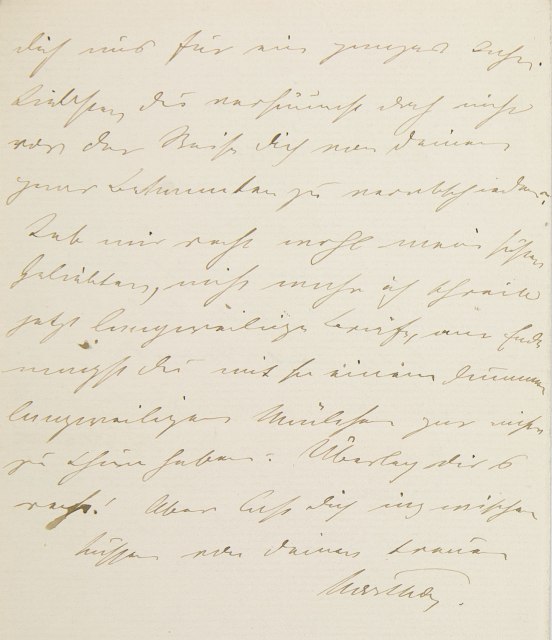 dich uns für ein ganzes Jahr.
Liebster, du versäumst doch nicht
vor der Reise dich von deinen
paar Bekannten zu verabschieden?
Leb mir recht wohl mein süßer
Geliebter, nicht wahr ich schreibe
jetzt langweilige Briefe, am Ende
magst du mit so einem dummen
langweiligen Mädchen gar nichts
zu thun haben. Überleg dir's
recht! Aber laß dich inzwischen
küssen von deiner treuen
Martha.